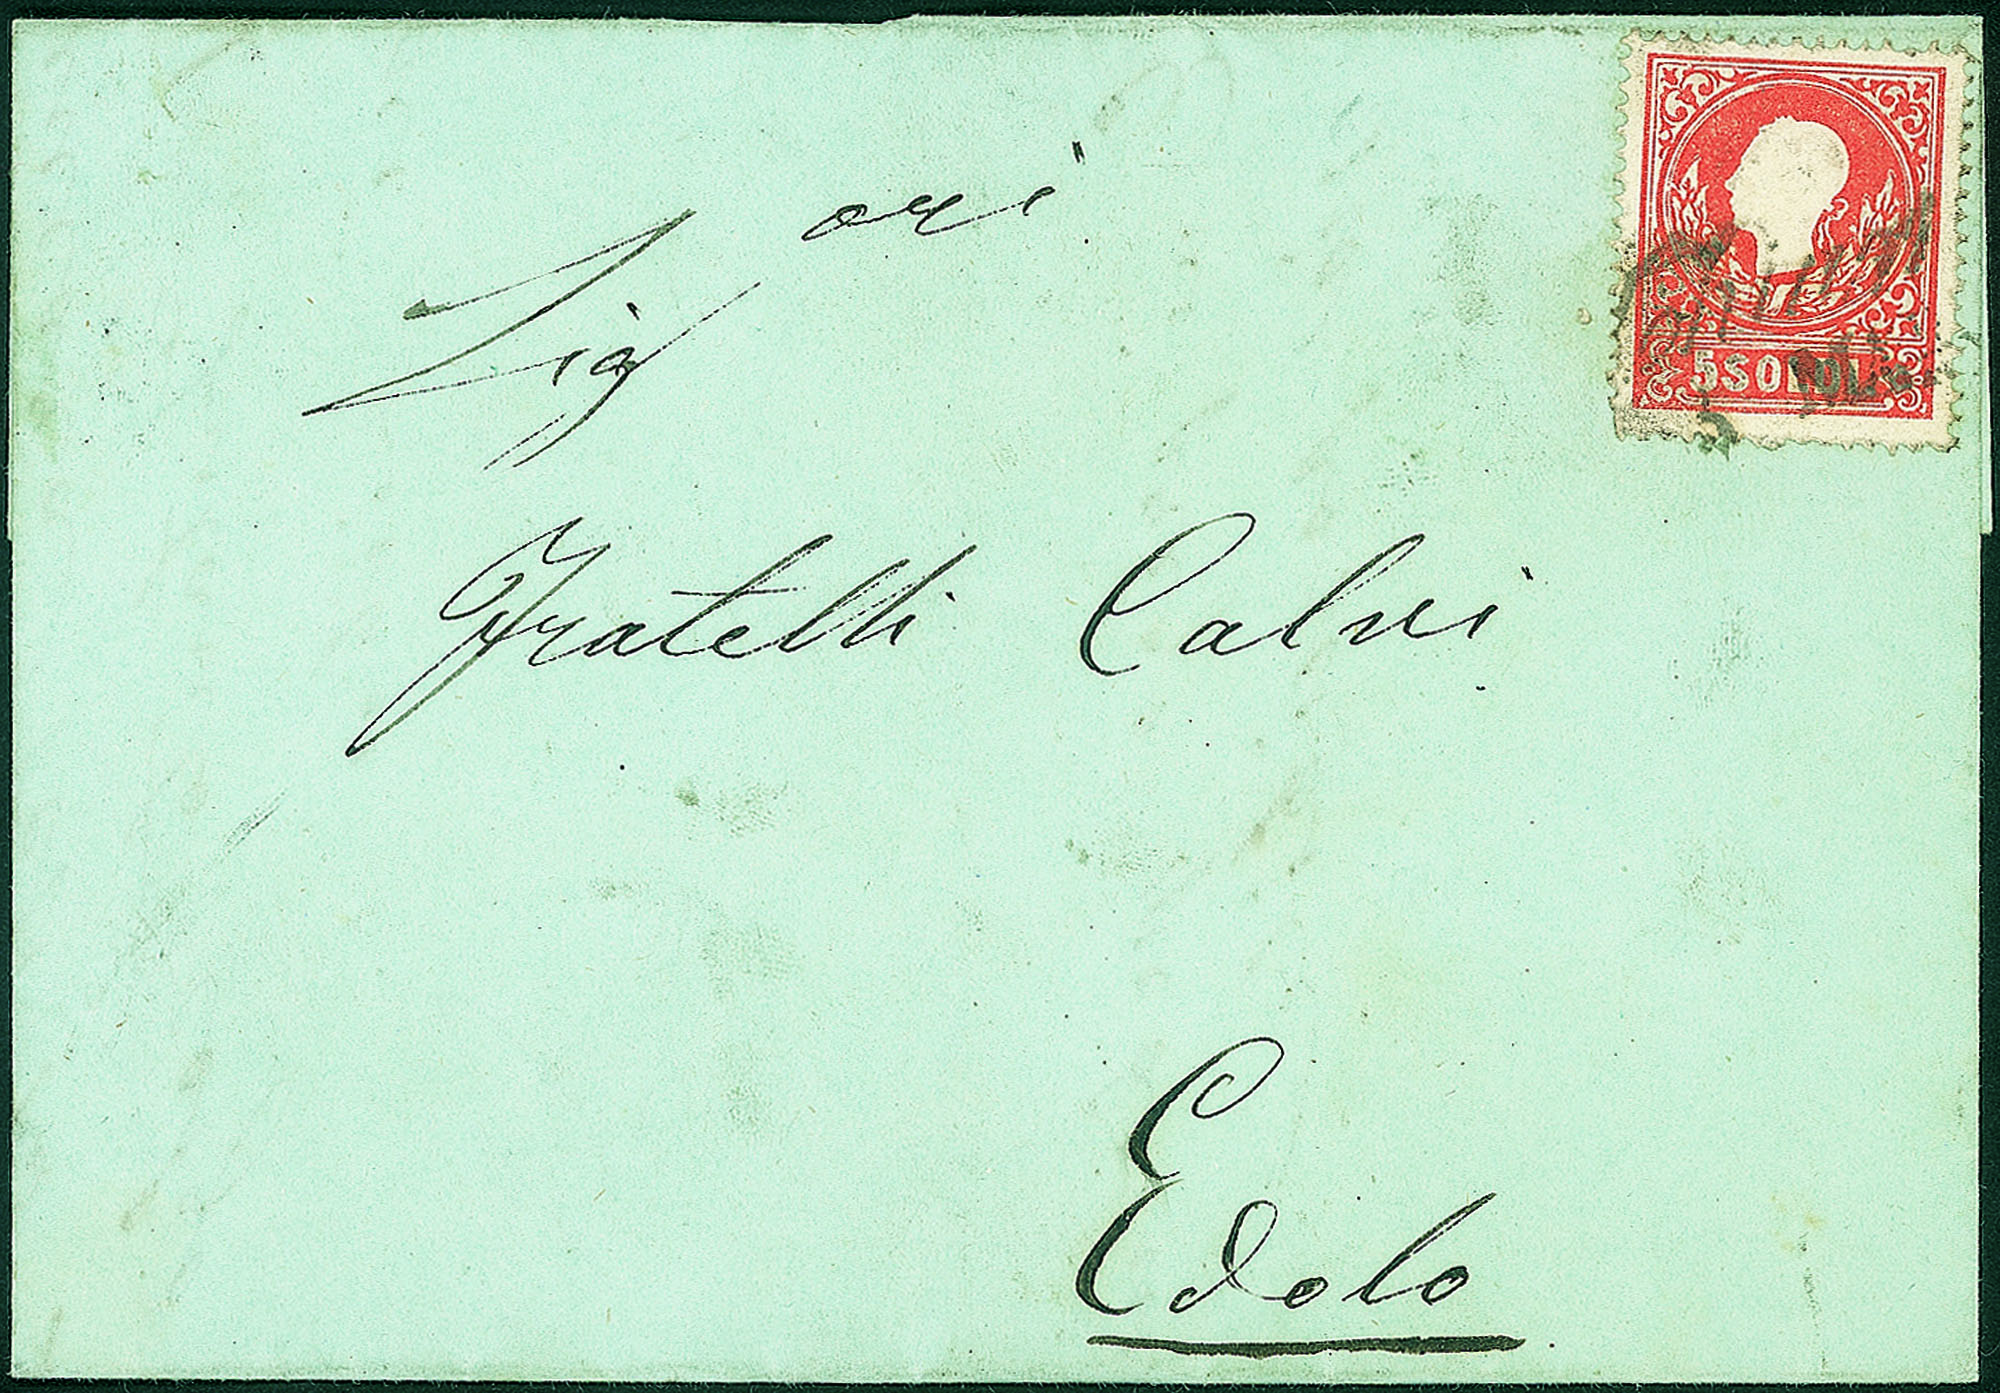 Sig ori
Fratelli Calvi
Edolo
5 SOLDI